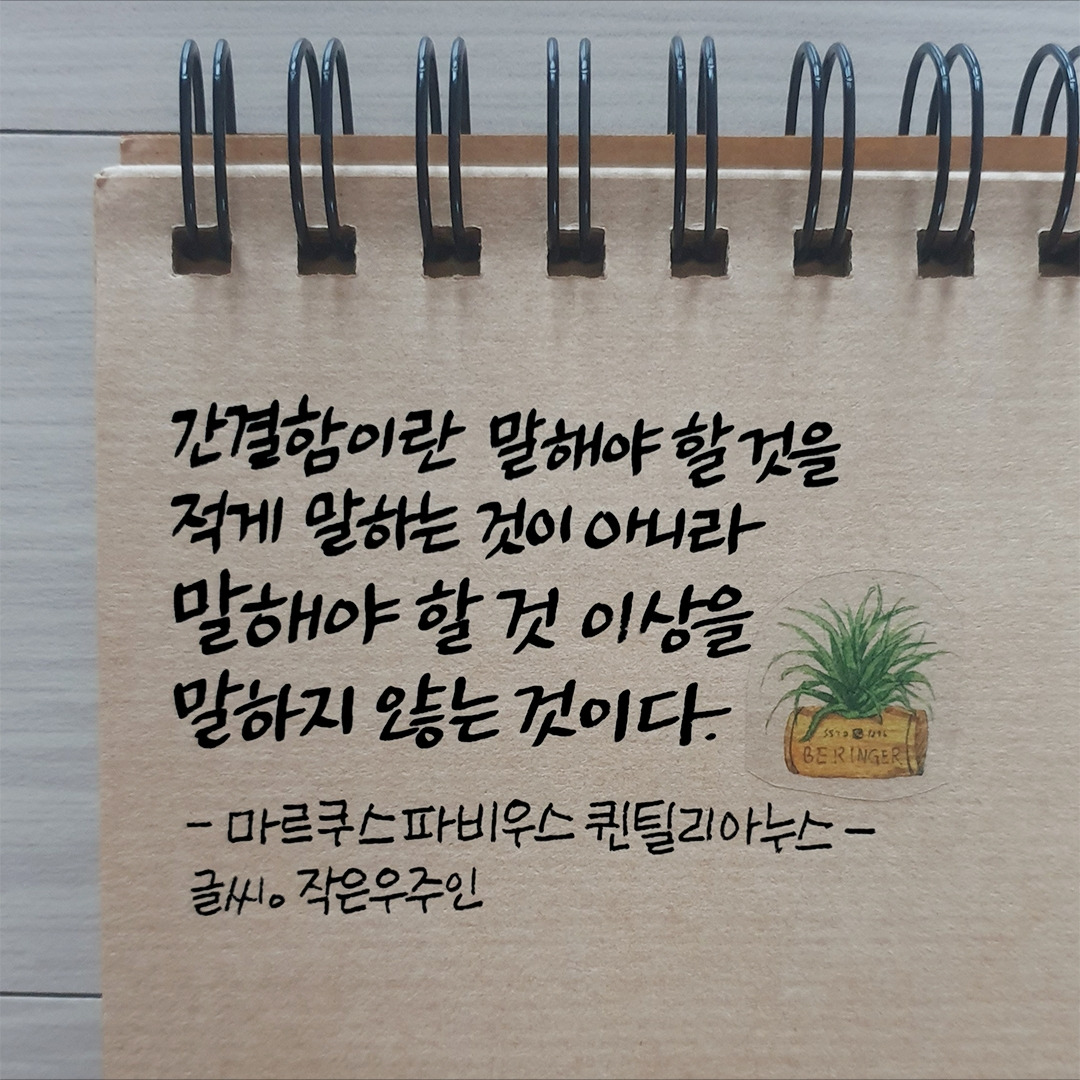 간결함이란 말해야 할 것을
적게 말하는 것이 아니라
말해야 할 것 이상을
말하지 않는 것이다.
BERINGER
- 마르쿠스 파비우스 퀸틸리아누스 -
글씨。작은우주인